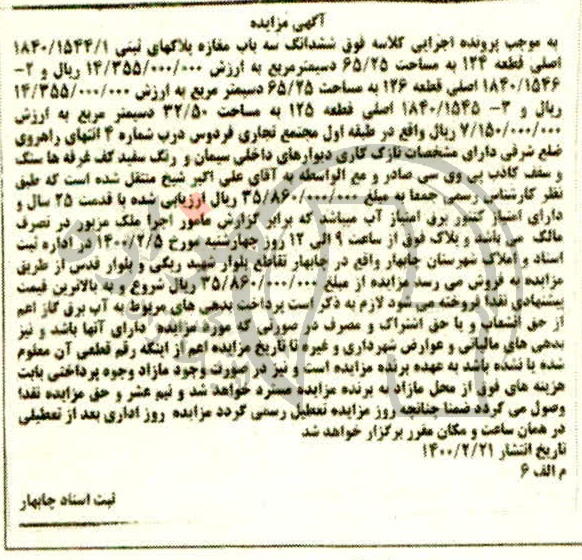 آگهی مزایده
به موجب پرونده اجرایی کلاسه فوق ششدانگ سه باب مغازه پلاکهای ثبتی ۱۸۴۰/۱۵۴۴/۱
اصلی قطعه ۱۲۴ به مساحت ۶۵/۲۵ دسیمترمربع به ارزش ۱۴/۳۵۵/۰۰۰/۰۰۰ ریال و ۲-
۱۸۴۰/۱۵۴۶ اصلی قطعه ۱۲۶ به مساحت ۶۵/۲۵ دسیمتر مربع به ارزش ۱۴/۳۵۵/۰۰۰/۰۰۰
ریال و ۳- ۱۸۴۰/۱۵۴۵ اصلی قطعه ۱۲۵ به مساحت ۳۲/۵۰ دسیمتر مربع به ارزش
۷/۱۵۰/۰۰۰/۰۰۰ ریال واقع در طبقه اول مجتمع تجاری فردوس درب شماره ۴ انتهای راهروی
ضلع شرقی دارای مشخصات نازک کاری دیوارهای داخلی سیمان و رنگ سفید کف غرفه ها سنگ
و سقف کاذب پی وی سی صادر و مع الواسطه به آقای علی اکبر شیخ منتقل شده است که طبق
نظر کارشناس رسمی جمعا به مبلغ ۳۵/۸۶۰/۰۰۰/۰۰۰ ریال ارزیابی شده با قدمت ۲۵ سال و
دارای امتیاز کنتور برق امتیاز آب میباشد که برابر گزارش مامور اجرا ملک مزبور در تصرف
مالک می باشد و پلاک فوق از ساعت ۹ الی ۱۲ روز چهارشنبه مورخ ۱۴۰۰/۲/۵ در اداره ثبت
اسناد و املاک شهرستان چابهار واقع در چابهار تقاطع بلوار شهید ریگی و بلوار قدس از طریق
مزایده به فروش می رسد مزایده از مبلغ ۳۵/۸۶۰/۰۰۰/۰۰۰ ریال شروع و به بالاترین قیمت
پیشنهادی نقدا فروخته می شود لازم به ذکر است پرداخت بدهی های مربوط به آب برق گاز اعم
از حق انشعاب و یا حق اشتراک و مصرف در صورتی که مورد مزایده دارای آنها باشد و نیز
بدهی های مالیاتی و عوارض شهرداری و غیره تا تاریخ مزایده اعم از اینکه رقم قطعی آن معلوم
شده یا نشده باشد به عهده برنده مزایده است و نیز در صورت وجود مازاد وجوه پرداختی بابت
هزینه های فوق از محل مازاد به برنده مزایده مسترد خواهد شد و نیم عشر و حق مزایده نقدا
وصول می گردد ضمنا چنانچه روز مزایده تعطیل رسمی گردد مزایده روز اداری بعد از تعطیلی
در همان ساعت و مکان مقرر برگزار خواهد شد
تاریخ انتشار ۱۴۰۰/۲/۲۱
م الف ۶
ثبت اسناد چابهار